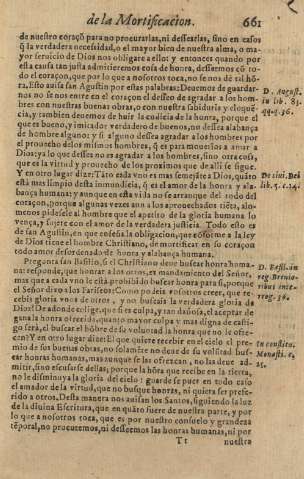 de la Mortificacion. 661
de nuestro coraçõ para no procurarlas, ni dessearlas, sino en casos
q̃ la verdadera necessidad, o el mayor bien de nuestra alma, o ma-
yor seruicio de Dios nos obligare a ello: y entonces quando por
esta causa tan justa admitieremos cosa de honra, dessearmos cõ to-
do el coraçon, que por lo que a nosotros toca, no se nos dè tal hõ-
ra. Esto auisa san Agustin por estas palabras: Deuemos de guardar-
nos no se nos entre en el coraçon el desseo de agradar a los hom-
bres con nuestras buenas obras, o con nuestra sabiduria y eloquẽ-
cia, y tambien deuemos de huir la codicia de la honra, porque el
que es bueno, y imitador verdadero de buenos, no dessea alabança
de hombre alguno: y si alguno dessea agradar a los hombres por
el prouecho de los mismos hombres, q̃ es para mouerlos a amar a
Dios: ya lo que dessea no es agradar a los hombres, sino otra cosa,
que es la virtud y prouecho de los proximos que de alli se sigue.
Y en otro lugar dize: Tãto cada vno es mas semejãte a Dios, quãto
està mas limpio desta inmundicia, q̃ es el amor de la honra y ala-
bança humana: y aunque en esta vida no se arranque del todo del
coraçon, porque algunas vezes aun a los aprouechados tiẽta, alo-
menos pidesele al hombre que el apetito de la gloria humana lo
vença, y sugete con el amor de la verdadera justicia. Todo esto es
de san Agustin, en que enseña la obligacion, que conforme a la ley
de Dios tiene el hombre Christiano, de mortificar en su coraçon
todo amor desordenado de honra y alabança humana.
Pregunta san Basilio, si el Christiano deue buscar honra huma-
na: responde, que honrar a los otros, es mandamiento del Señor,
mas que a cada vno le està prohibido buscar honra para si, porque
el Señor dixo a los Fariseos: Como podeis vosotros creer, que re-
cebis gloria vnos de otros, y no buscais la verdadera gloria de
Dios? De adonde colige, que si es culpa, y tan dañosa, el aceptar de
gana la honra ofrecida, quanto mayor culpa y mas digna de casti-
go serà, el buscar el hõbre de su voluntad la honra que no le ofre-
cen? Y en otro lugar dize: El que quiere recebir en el cielo el pre-
mio de sus buenas obras, no solamẽte no deue de su volũtad bus-
car honras humanas, mas aunque se las ofrezcan, no las deue ad-
mitir, sino escusarse dellas; porque la hõra que recibe en la tierra,
no le disminuya la gloria del cielo: guardese pues en todo caso
el amador de la virtud, que no busque honras, ni quiera ser prefe-
rido a otros. Desta manera nos auisan los Santos, siguiendo la luz
de la diuina Escritura, que en quãto fuere de nuestra parte, y por
lo que a nosotros toca, que es por nuestro consuelo y grandeza
tẽporal, no procuremos, ni desseemos las honras humanas, ni por
Tt nuestro
D. August.
in lib. 83.
qq. q. 36.
De ciui. Dei
lib. 5. c. 14.
D. Basil. in
reg. Breuio-
ribus inte-
rrog. 36.
In constitu.
Monasti. c.
25.